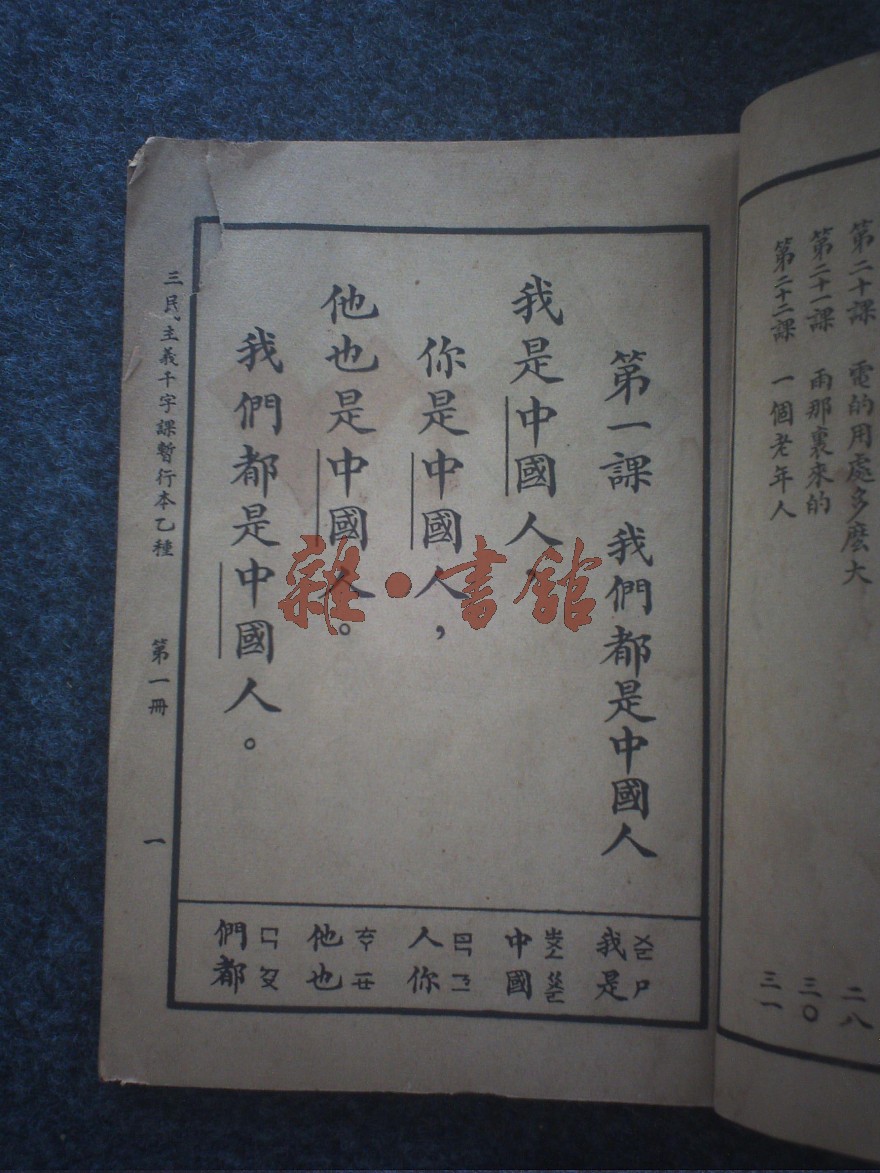 第二十課 電的用處多麽大 二八
第二十一課 雨那裏來的 三〇
第二十二課 一個老年人 三一
第一課 我們都是中國人
我是中國人,
你是中國人,
他也是中國人。
我們都是中國人。
我 ㄨㄛ
是 ㄕ
中 ㄓㄨㄥ
國 ㄍㄨㄛ
人 ㄖㄣ
你 ㄋㄧ
他 ㄊㄚ
也 ㄧㄝ
們 ㄇㄣ
都 ㄉㄡ
三民主義千字課暫行本乙種 第一冊 一
雜·書館